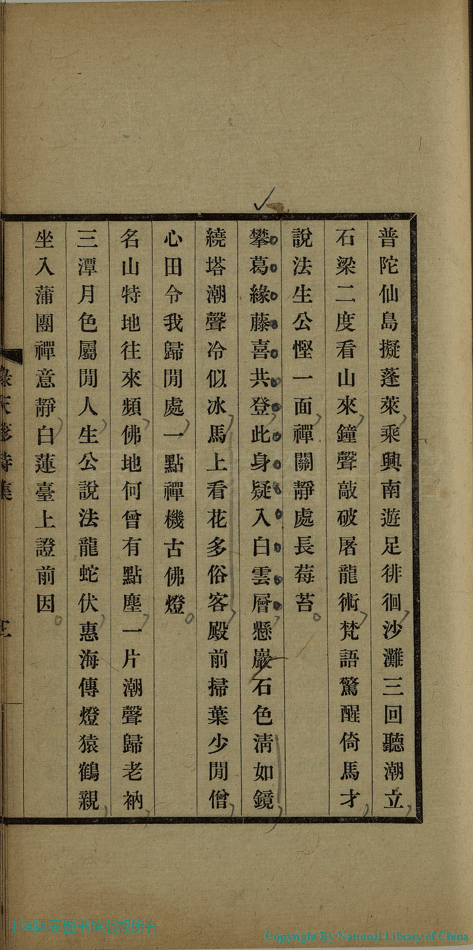 普陀仙島擬蓬萊乘興南遊足徘徊沙灘三回聽潮立
石梁二度看山來鐘聲敲破屠龍術梵語驚醒倚馬才
說法生公慳一面禪關靜處長莓苔
攀葛緣藤喜共登此身疑入白雲層懸巖石色淸如鏡
繞塔潮聲冷似冰馬上看花多俗客殿前掃葉少閒僧
心田令我歸閒處一點禪機古佛燈
名山特地往來頻佛地何曾有點塵一片潮聲歸老衲
三潭月色屬閒人生公說法龍蛇伏惠海傳燈猿鶴親
坐入蒲團禪意靜白蓮臺上證前因
Copyright By National Library of China